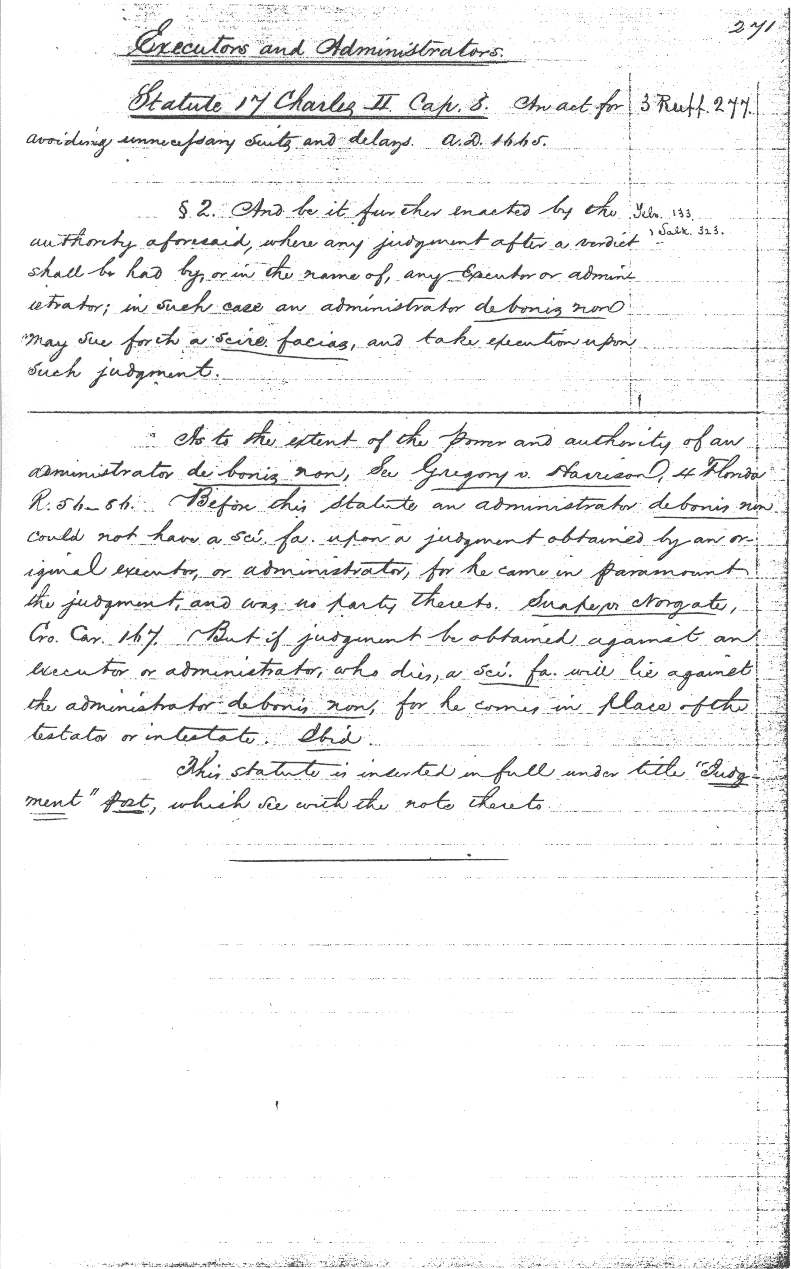 271
Executors and Administrators.
Statute 17 Charles II. Cap. 8. An act for
3 Ruff. 277.
avoiding unnecessary suits and delays. A.D. 1665.
§ 2. And be it further enacted by the
Yelv. 133.
authority aforesaid, where any judgment after a verdict
1 Salk. 323.
shall be had by, or in the name of, any Executor or admin
istrator; in such case an administrator de bonis non
may sue forth a scire facias, and take execution upon
such judgment.
As to the extent of the power and authority of an
administrator de bonis non, See Gregory v. Harrison, 4 Florida
R. 56-86. Before this statute an administrator de bonis non
could not have a sci. fa. upon a judgment obtained by an or-
iginal executor, or administrator, for he came in paramount
the judgment, and was no party thereto. Snape v. Norgate,
Cro. Car. 167. But if judgment be obtained against an
executor or administrator, who dies, a sci. fa. will lie against
the administrator de bonis non, for he comes in place of the
testator or intestate. Ibid.
This statute is inserted in full under title "Judg-
ment" post, which see with the note thereto.